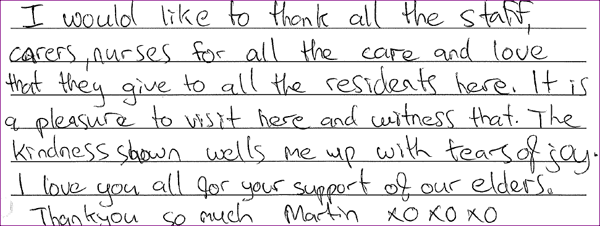 I would like to thank all the staff,
carers, nurses for all the care and love
that they give to all the residents here. It is
a pleasure to visit here and witness that. The
kindness shown wells me up with tears of joy.
I love you all for your support of our elders.
Thankyou so much Martin xo xo xo